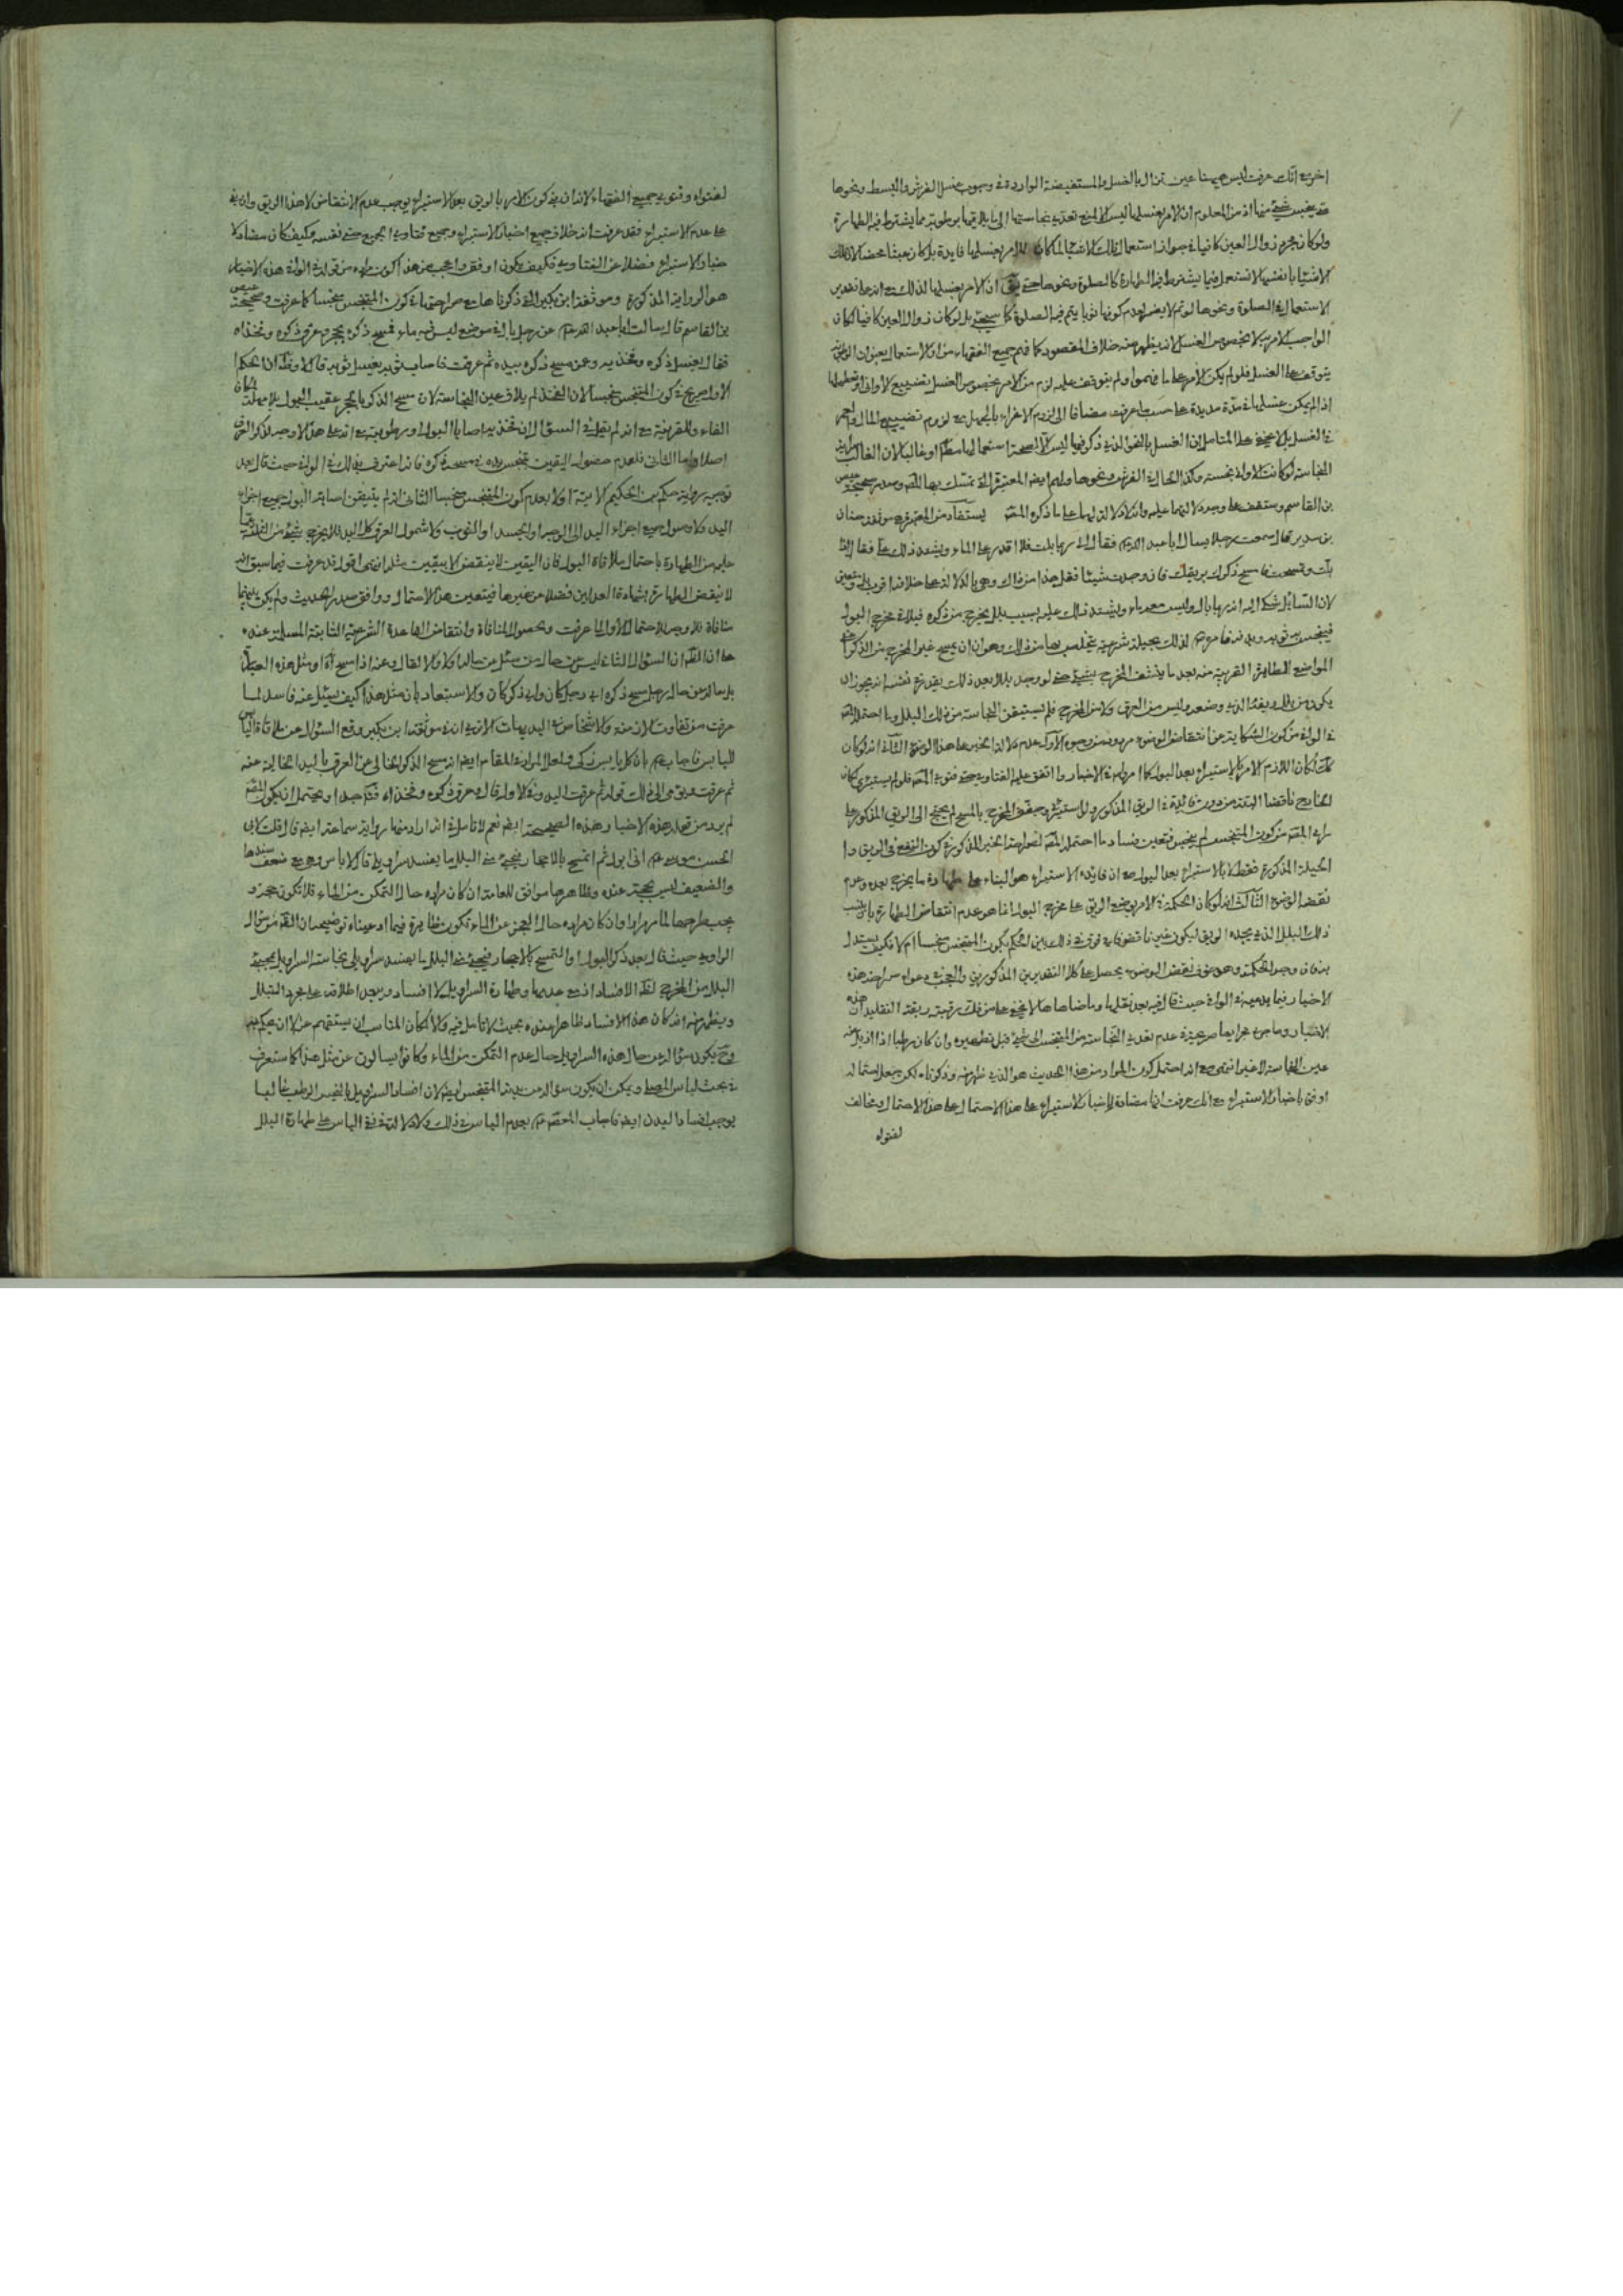 اخر مع انك عرفت ليس هيهنا عين تزال بالغسل والمستفيضة الواردة في وجوب غسل الفرش والبسط ونحوها
شئ منها اذ من المعلوم ان الامر بغسلها ليس الا لمنع تعدي نجاستها الى ما يلاقيها برطوبة مما يشترط فيه الطهارة
ولو كان مجرد زوال العين كافيا في جواز استعمال تلك الاشياء لما كان للامر بغسلها فايدة بل كان عبثا محضا لان تلك
الاشياء بانفسها لا تستعمل فيما يشترط فيه الطهارة كالصلوة ونحوها حتى يق ان الامر بغسلها لذلك مع انه على تقدير
الاستعمال في الصلوة ونحوها لو تم لا يضر لعدم كونها ثوبا يتم فيه الصلوة كما سيجئ بل لو كان زوال العين كافيا لكان
الواجب الامر به لا بخصوص الغسل لانه يظهر منه خلاف المقصود كما فهم جميع الفقهاء
يتوقف على الغسل فلو لم يكن الامر على ما فهموا ولم يتوقف عليه لزم من الامر بخصوص الغسل تضييع الاوقات وتعطيلها
اذ لم يكن غسلها في مدة مديدة على حسب ما عرفت مضافا الى لزوم الاغراء بالجهل مع لزوم تضييع المال
في الغسل بل لا يخفى على المتامل ان الغسل بالنحو الذي ذكر فيها ليس الا لصحة استعمالها مطلقا او غالبا لان الغالب
النجاسة لو كانت الاولى نجسة وكذا الحال في الفرش ونحوها ولهم ايضا المعتبرة التي تمسك بها المصنف وصدر صحيحة عيص
بن القاسم وستقف على وجه دلالتها عليه وانه لا دلالة لها على ما ذكره المصنف يستفاد من المعتبرة موثقة حنان
بن سدير قال سمعت رجلا يسال ابا عبد الله ع فقال اني ربما بلت فلا اقدر على الماء ويشتد ذلك علي فقال اذا
بلت وتمسحت فامسح ذكرك بريقك فان وجدت شيئا فقل هذا من ذاك وهي بالدلالة على خلافه اقرب بل متعين
لان السائل شكى اليه انه ربما بال وليس معه ماء ويشتد ذلك عليه بسبب بلل يخرج من ذكره فيلاقي مخرج البول
فينجس به ثوبه وبدنه فامره ع لذلك بحيلة شرعية يتخلص بها من ذلك وهو ان يمسح غير المخرج من الذكر اعني
المواضع الطاهرة القريبة منه بعد ما ينشف المخرج بشئ حتى لو وجد بللا بعد ذلك يقدر في نفسه انه يجوز ان
يكون من بلل ريقه الذي وضعه وليس من العرق ولا من المخرج فلم يستيقن النجاسة من ذلك البلل وما احتمله المصنف
في الوافي من كون الشكاية عن انتقاض الوضوء مردود من وجوه الاول عدم دلالة الخبر على هذا الوضوء الثاني انه لو كان
كذلك لكان اللازم الامر بالاستبراء بعد البول كما امر به في الاخبار واتفق عليه الفتاوي حتى فتوى المصنف فلو لم يستبرئ كان
الخارج ناقضا البتة من دون فائدة في الريق المذكور ولو استبرئ وجفف المخرج بالمسح لم يحتج الى الريق المذكور على
راي المصنف من كون المتنجس لم ينجس فتعين فساد ما احتمله المصنف لصراحة الخبر المذكور في كون النفع في الريق و
الحيلة المذكورة فقط لا بالاستبراء بعد البول مع ان فايدة الاستبراء هو البناء على طهارة ما يخرج بعده وعدم
نقضه الوضوء الثالث انه لو كان الحكمة في الامر بوضع الريق على مخرج البول انما هو عدم انتقاض الطهارة
ذلك البلل الذي يجده الريق ليكون غير ناقض فاي فرق في ذلك بين الحكم بكون المتنجس منجسا ام لا فكيف يستدل
بذلك وجه الحكمة وهو خوف نقض الوضوء يحصل على كلا التقديرين المذكورين والعجب دعواه صراحة هذه
الاخبار فيما يدعيه في الوافي حيث قال فيه بعد نقلها وما ضاهاها لا يخفى على من فك رقبته من ربقة التقليد ان هذه
الاخبار وما جرى مجراها صريحة في عدم تعدي النجاسة من المتنجس الى شئ قبل تطهيره وان كان رطبا اذا ازيل عنه
عين النجاسة الاخير انتهى مع انه احتمل كون المراد من هذا الحديث هو الذي ظهر منه وذكرناه لكن جعل احتماله
اوفق باخبار الاستبراء مع انك عرفت انها مضادة لاخبار الاستبراء على هذا الاحتمال وعلى هذا الاحتمال ومخالف
لفتواه
لفتواه وفتوى جميع الفقهاء لانه ان في كون الامر بالريق بعد الاستبراء يوجب عدم الانتقاض لا هذا الريق وان في
على عدم الاستبراء فقد عرفت انه خلاف جميع اخبار الاستبراء وجميع فتاوي الجميع حتى نفسه وكيف كان مضاد لا
خبار الاستبراء فضلا عن الفتاوي فكيف يكون اوفق واعجب من هذا كون مراده من قوله في الوافي هذه الاخبار
هو الرواية المذكورة وموثقة ابن بكير التي ذكرناها مع صراحتها في كون المتنجس منجسا كما عرفت وصحيحة عيص
بن القاسم قال سالت ابا عبد الله ع عن رجل بال في موضع ليس فيه ماء فمسح ذكره بحجر وعرق ذكره وفخذاه
فقال يغسل ذكره وفخذيه وعن مسح ذكره بيده ثم عرقت فاصاب ثوبه يغسل ثوبه قال لا وظ ان الحكم
الاول صريح في كون المتنجس منجسا لان الفخذ لم يلاق عين النجاسة لان مسح الذكر بالحجر عقيب البول بلا مهلة لمكان
الفاء وللقرينة مع انه لم يقل في السؤال ان فخذيه اصابا البول او رطوبته مع انه على هذا لا وجه لذكر العرق
اصلا واما الثاني فلعدم حصول اليقين بتنجس يده في مسحه ذكره فانه اعترف بذلك في الوافي حيث قال بعد
توجيه رواية حكم بن الحكيم الاتية او لا بعدم كون المتنجس منجسا الثاني انه لم يتيقن اصابة البول جميع اجزاء
اليد ولا وصول جميع اجزاء اليد الى الوجه او الجسد او الثوب ولا شمول العرق كل اليد فلا يخرج شئ من الثلثة عما
عليه من الطهارة باحتمال ملاقاة البول فان اليقين لا ينقض الا بيقين مثله انتهى اقول قد عرفت فيما سبق انه
لا ينقض الطهارة بشهادة العدلين فضلا عن غيرها فيتعين هذا الاحتمال ووافق صدر الحديث ولم يكن بينهما
منافاة فلا وجه للاحتمال الاول لما عرفت ولحصول المنافاة وانتقاض القاعدة الشرعية الثابتة المسلمة عنده
مع ان الظ ان السؤال الثاني ليس عن حال من سئل عن حاله اولا والا لقال وعنه اذا مسح اه او مثل هذه العبارة
بل سؤال عن حال رجل مسح ذكره اي رجل كان واي ذكر كان والاستبعاد بان مثل هذا كيف يسئل عنه فاسد لما
عرفت من تفاوت الازمنة والاشخاص في البديهيات الا ترى ان في موثقة ابن بكير وقع السؤال عن ملاقاة اليابس
لليابس فاجاب ع بان كل يابس زكى ولعل المراد في المقام ايضا انه مسح الذكر الخالي عن العرق باليد الخالية عنه
ثم عرقت يومى الى ذلك قوله ثم عرقت اليد وفي الاول قال عرق ذكره وفخذاه فتامل جدا ويحتمل ان يكون المصنف
لم يرد من قوله هذه الاخبار هذه الصحيحة ايضا نعم لا تامل في انه اراد منها رواية سماعة ايضا قال قلت لابي
الحسن موسى ع اني ابول ثم اتمسح بالاحجار فيجئ مني البلل ما يفسد سراويلي قال لا باس وهي مع ضعف سندها
والضعيف ليس بحجة عنده وظاهرها موافق للعامة ان كان مراده حال التمكن من الماء فلا تكون حجة و
يجب طرحها لما مر مرارا وان كان مراده حال العجز عن الماء تكون ظاهرة فيما ادعيناه توضيحه ان الظ من سؤال
الراوي حيث قال بعد ذكر البول والتمسح بالاحجار فيجئ مني البلل ما يفسد سراويلي نجاسة السراويل بمجئ
البلل من المخرج لفظ الافساد اذ مع عدمها وطهارة السراويل لا افساد ويبعد اطلاقه على مجرد التبلل
ويظهر منه انه كان هذا الافساد ظاهرا عنده بحيث لا تامل فيه والا لكان المناسب ان يستفهم عنه لا ان يحكم به
وح يكون سؤاله عن حال هذه السراويل حال عدم التمكن من الماء وكانوا يسالون عن مثل هذا كما ستعرف
في بحث لباس المصلي ويمكن ان يكون سؤاله عن بدنه المتنجس ايضا لان افساد السراويل بالنجس الرطب غالبا
يوجب افساد البدن ايضا فاجاب المعصوم ع بعدم الباس في ذلك ولا دلالة في نفي الباس على طهارة البلل